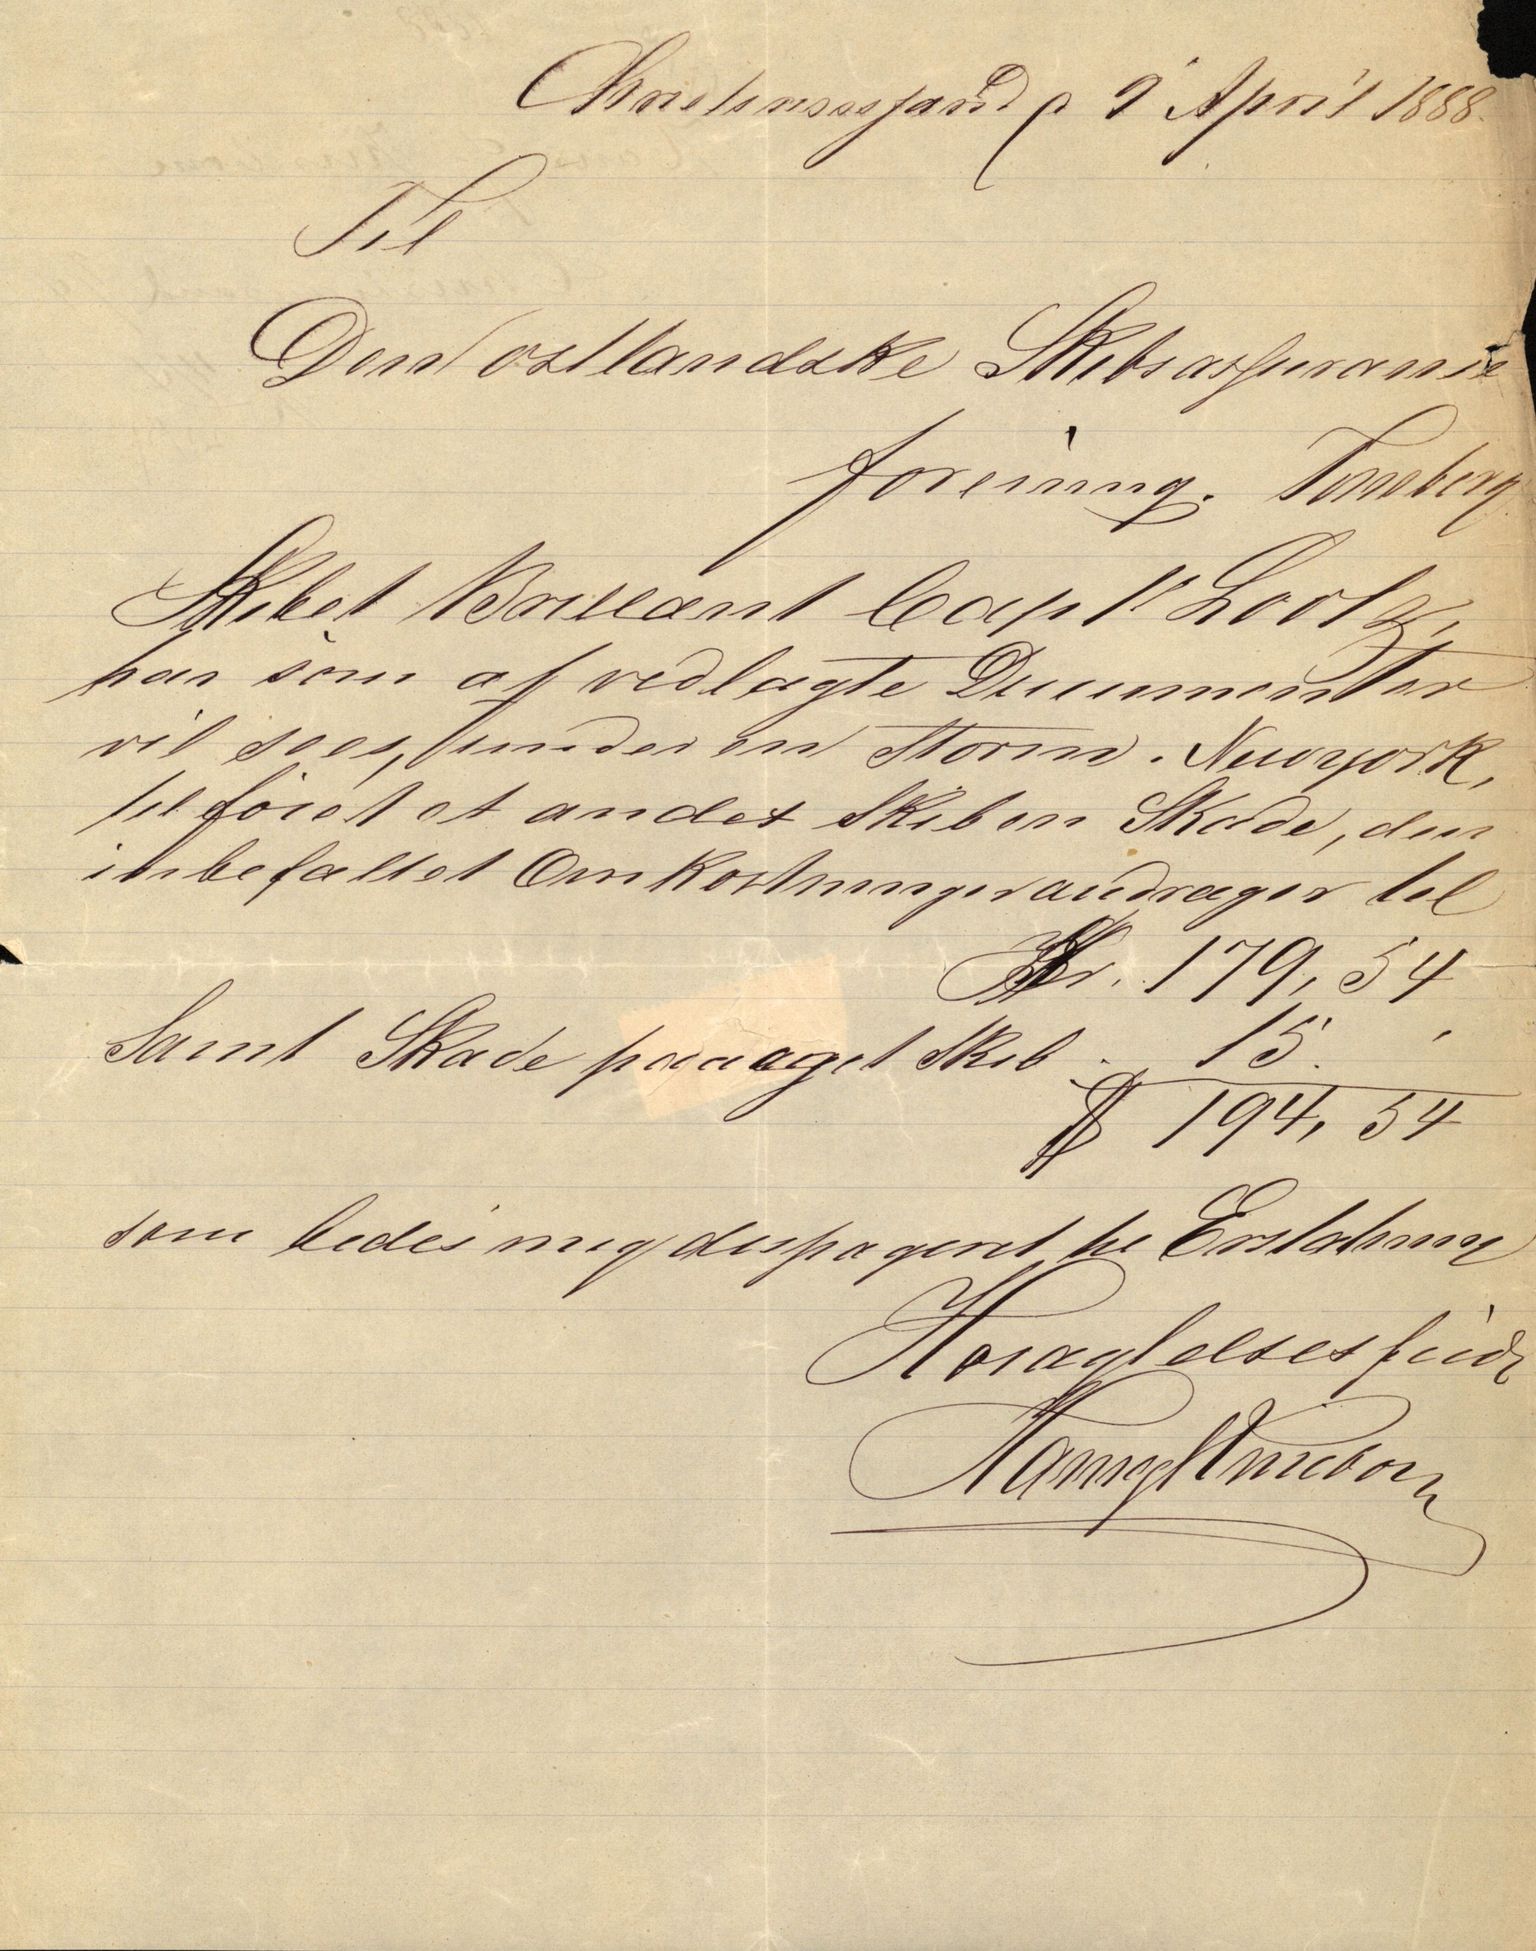 Christianssand d 9' April 1888.
Til
Den ostlandske Skibsassurance
forening. Tonsberg
Skibet Brillant Capt Lootz,
har som af vedlagte Documenter
vil sees, under en Storm. Newyork,
tilföiet et andet Skib en Skade, der
inbefattet Omkostninger andrager til
Kr. 179,54
Samt Skade paa eget Skib . 15.
$ 194,54
som bedes mig dispageret til Erstatning
Höiagtelsesfuld